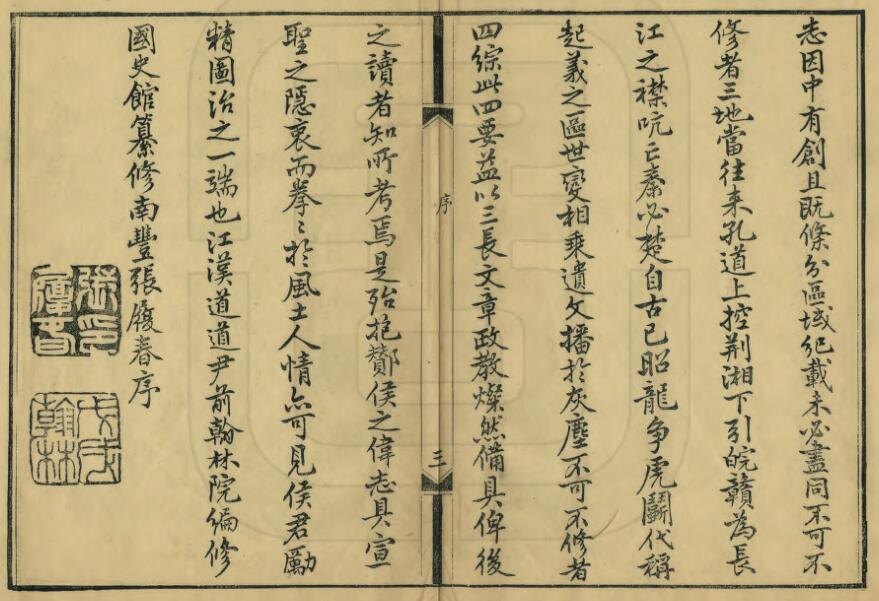 志因中有創且既條分區域紀載未必盡同不可不
修者三地當往来孔道上控荆湘下引皖贛為長
江之襟吭亡秦必楚自古已昭龍争虎鬭代稱
起義之區世變相乘遺文播於灰塵不可不修者
四綜此四要益以三長文章政教燦然備具俾後
序
三
之讀者知所考焉是殆抱酇侯之偉志具宣
聖之隱衷而拳〻於風土人情亦可見侯君勵
精圖治之一端也江漢道道尹前翰林院編修
國史館纂修南豐張履春序
張印履春
戊戌翰林